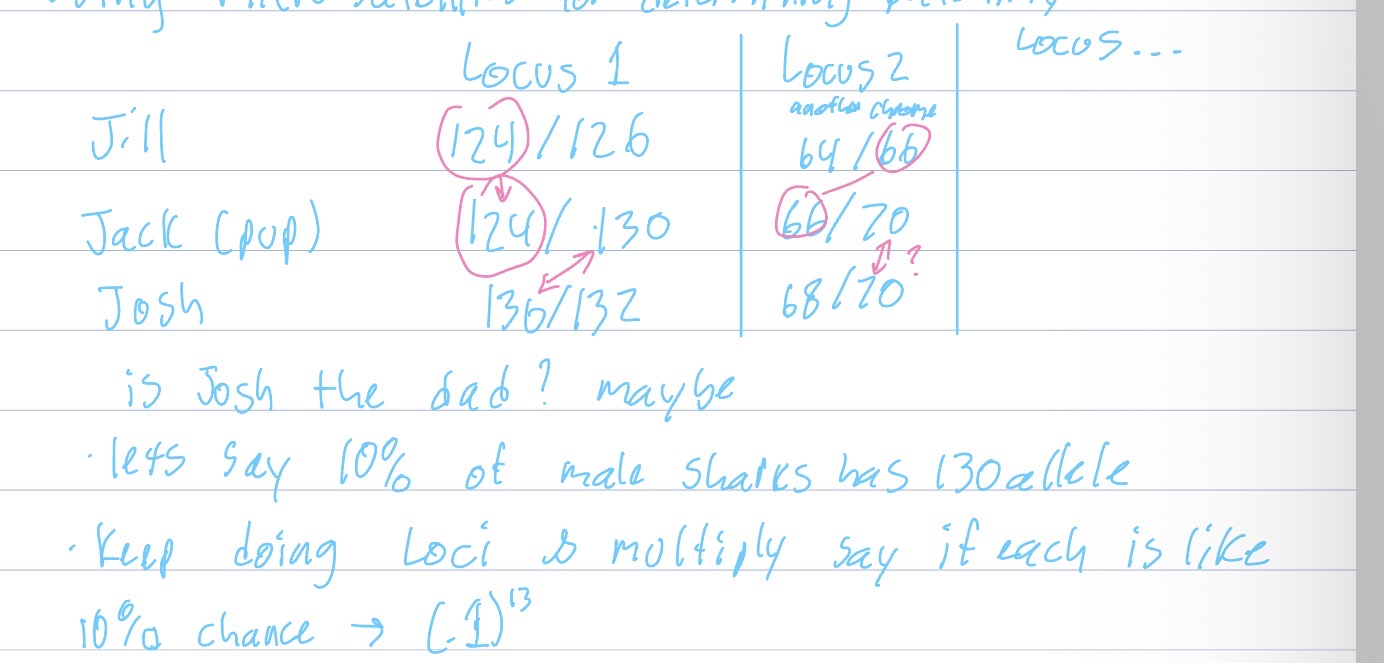 using microsatellites for determining paternity
Locus 1 Locus 2 Locus...
another chrome
Jill 124/126 64/66
Jack (pup) 124/130 66/70
?
Josh 130/132 68/70
is Josh the dad? maybe
· lets say 10% of male sharks has 130 allele
· Keep doing Loci & multiply say if each is like
10% chance → (.1)¹³